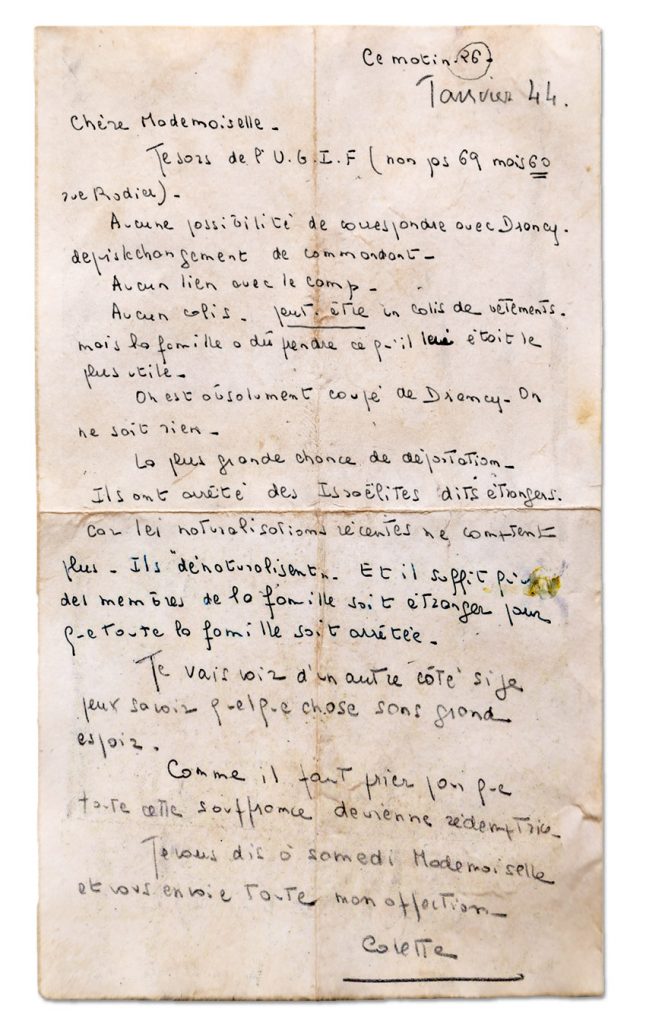 Ce matin 26
Janvier 44.
Chère Mademoiselle -
Je sors de l'U.G.I.F (non pas 69 mais 60
rue Rodier) -
Aucune possibilité de correspondre avec Drancy -
depuis changement de commandant -
Aucun lien avec le camp -
Aucun colis - peut-être un colis de vêtements -
mais la famille a dû prendre ce qu'il lui était le
plus utile -
On est absolument coupé de Drancy - On
ne sait rien -
La plus grande chance de déportation -
Ils ont arrêté des Israëlites dits étrangers -
car les naturalisations récentes ne comptent
plus - Ils "dénaturalisent" - Et il suffit qu'un
des membres de la famille soit étranger pour
que toute la famille soit arrêtée -
Je vais voir d'un autre côté si je
peux savoir quelque chose sans grand
espoir.
Comme il faut prier pour que
toute cette souffrance devienne rédemptrice -
Je vous dis à samedi Mademoiselle
et vous envoie toute mon affection -
Colette